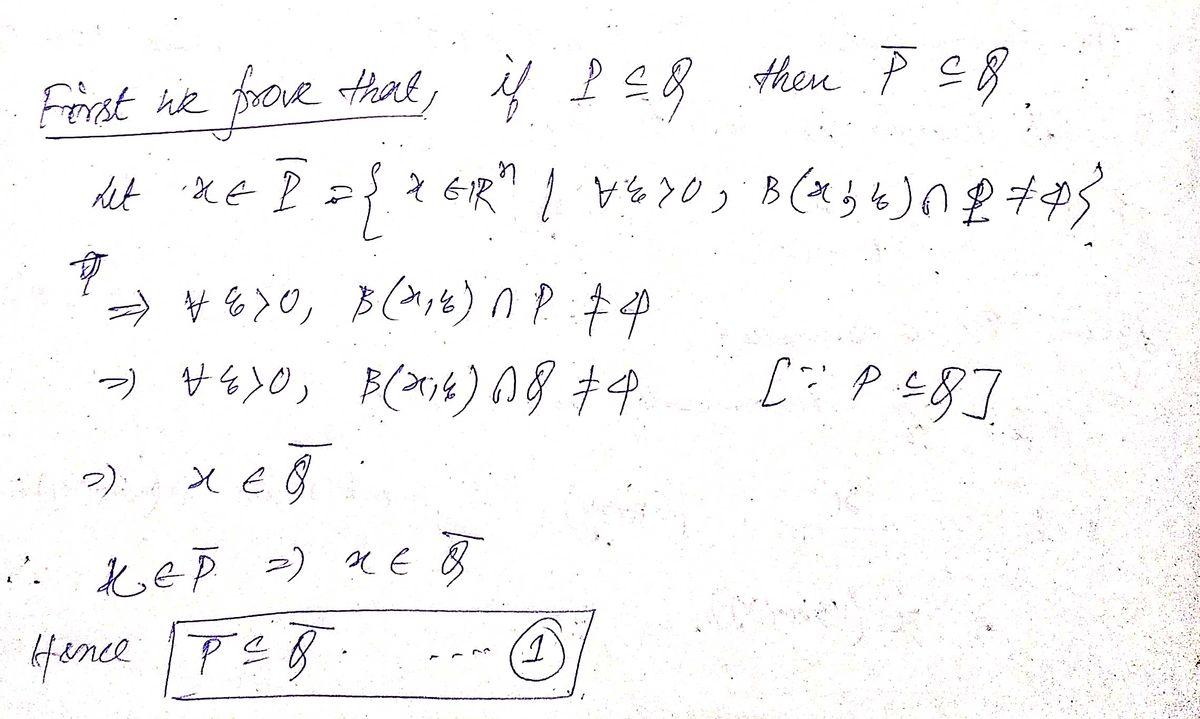 First we prove that, if P ⊆ Q then P̅ ⊆ Q.
Let x ∈ P̅ = { x ∈ ℝⁿ | ∀ ε > 0, B(x; ε) ∩ P ≠ φ}
⇒ ∀ ε > 0, B(x, ε) ∩ P ≠ φ
⇒ ∀ ε > 0, B(x, ε) ∩ Q ≠ φ [∵ P ⊆ Q].
⇒ x ∈ Q̅
∴ x ∈ P̅ ⇒ x ∈ Q̅
Hence P̅ ⊆ Q̅. .... ①